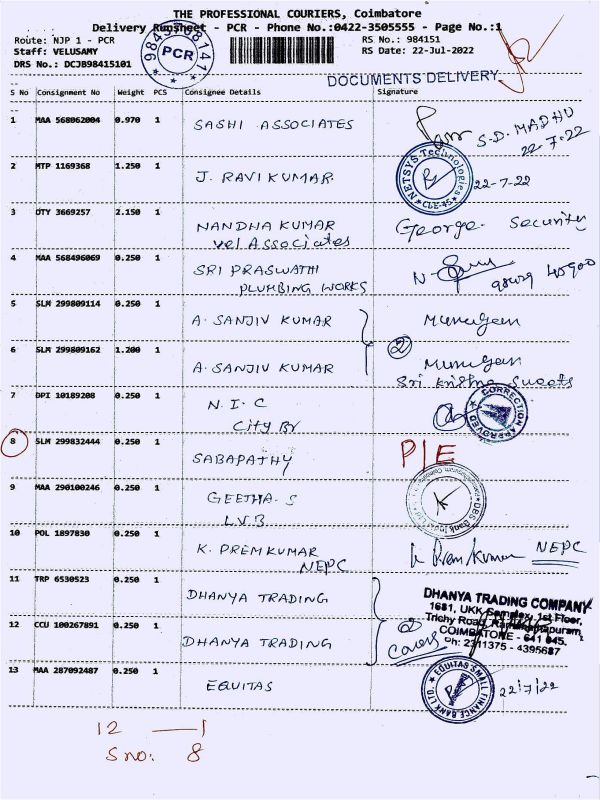 THE PROFESSIONAL COURIERS, Coimbatore
Delivery Runsheet - PCR - Phone No.:0422-3505555 - Page No.:1
Route: NJP 1 - PCR
RS No.: 984151
Staff: VELUSAMY
RS Date: 22-Jul-2022
DRS No.: DCJB98415101
PCR
DOCUMENTS DELIVERY
S No Consignment No Weight PCS Consignee Details Signature
1 MAA 568062004 0.970 1 SASHI ASSOCIATES S.D. MADHU
22-7-22
2 MTP 1169368 1.250 1 J. RAVI KUMAR. NETSYS Technologies CBE-45 22-7-22
3 OTY 3669257 2.150 1 NANDHA KUMAR George. Security
Vel Associates
4 MAA 568496069 0.250 1 SRI PRASWATHI
PLUMBING WORKS
5 SLM 299809114 0.250 1 A. SANJIV KUMAR Murugan
6 SLM 299809162 1.200 1 A. SANJIV KUMAR 2 Murugan
Sri Krishna Sweets
7 DPI 10189208 0.250 1 N. I. C CORRECTION APPROVED
City Br
8 SLM 299832444 0.250 1 SABAPATHY P/E
9 MAA 290100246 0.250 1 GEETHA. S DBS Bank India Ltd
L.V.B
10 POL 1897830 0.250 1 K. PREMKUMAR K Prem Kumar NEPC
NEPC
11 TRP 6530523 0.250 1 DHANYA TRADING DHANYA TRADING COMPANY
1681, UKK Complex, 1st Floor,
Trichy Road, Ramanathapuram,
12 CCU 100267891 0.250 1 DHANYA TRADING 2 Covers COIMBATORE - 641 045.
Ph: 2311375 - 4395687
13 MAA 287092487 0.250 1 EQUITAS EQUITAS SMALL FINANCE BANK LTD. 22/7/22
12 — 1
S no: 8